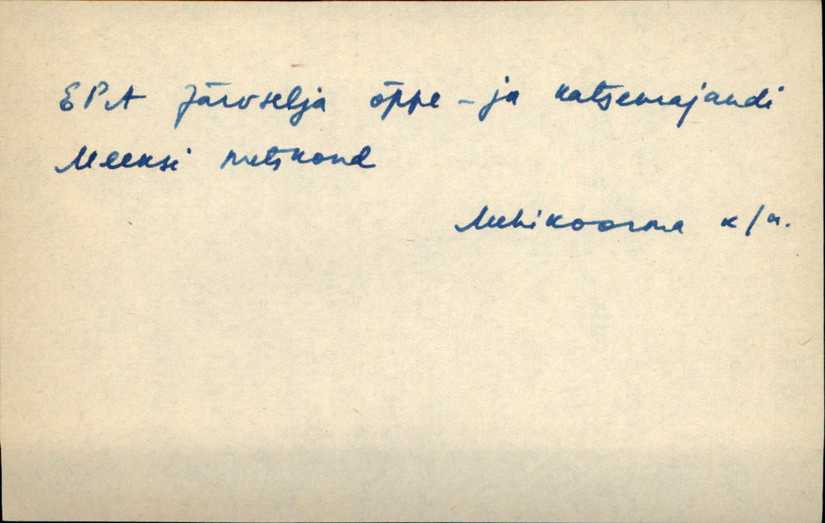 EPA Järvselja õppe- ja katsemajandi
Meeksi metskond
Mehikoorma k/n.